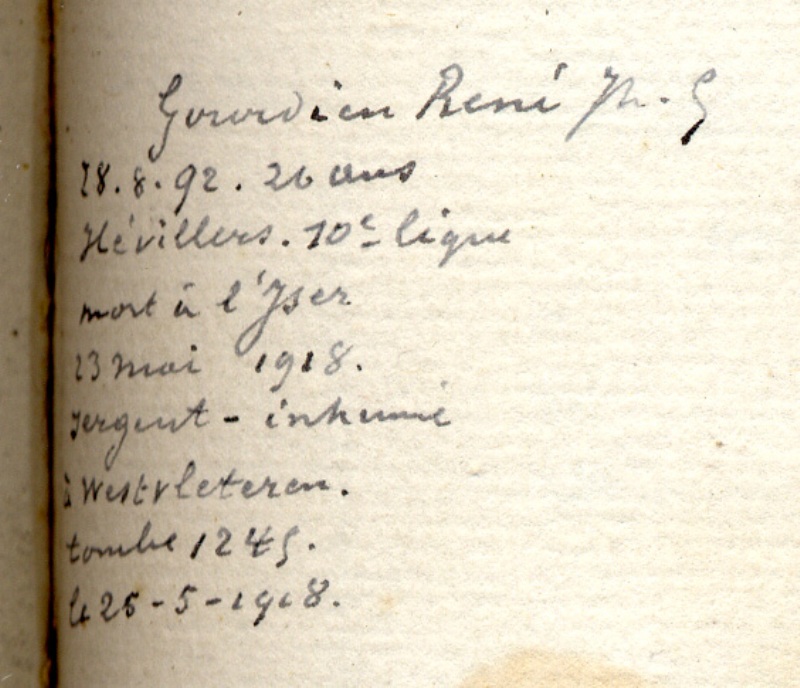 Gourdien René Jh. G
28.8.92. 26 ans
Hévillers. 10e ligne
mort à l'Yser
23 mai 1918.
sergent - inhumé
à Westvleteren.
tombe 1245.
le 25-5-1918.